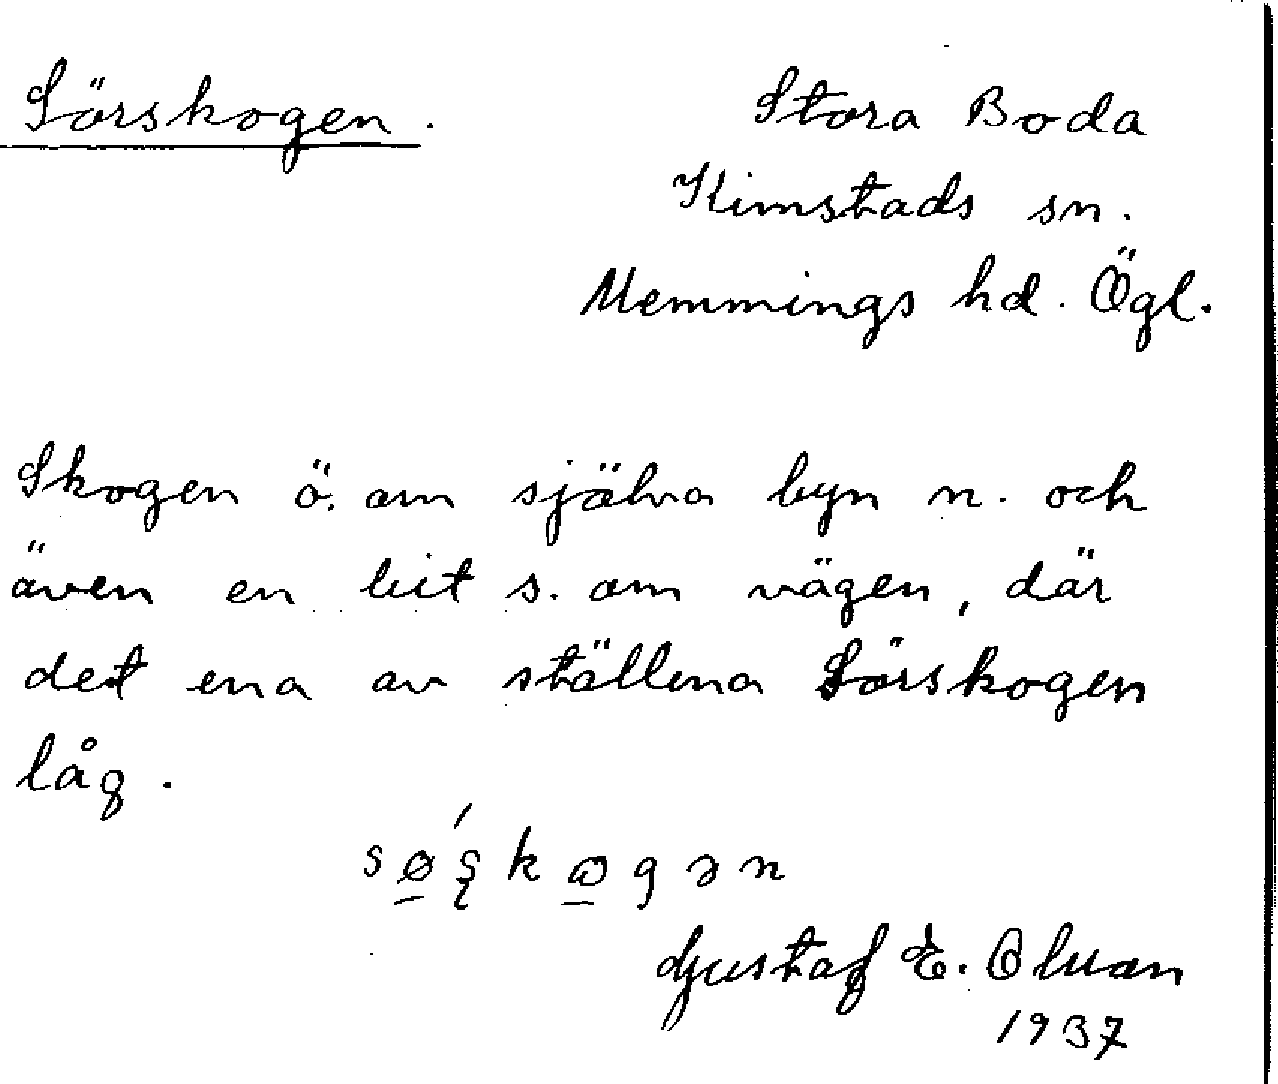 Sörskogen.
Stora Boda
Kimstads sn.
Memmings hd. Ögl.
Skogen ö. om själva byn n. och
även en bit s. om vägen, där
det ena av ställena Sörskogen
låg.
Gustaf E.
1937